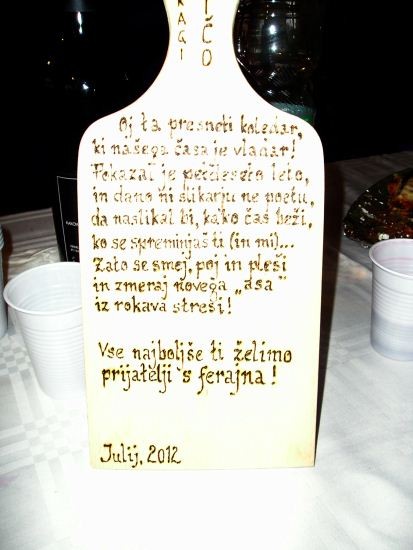 KAGI
IČO
Oj ta presneti koledar,
ki našega časa je vladar!
Pokazal je petdeseto leto,
in dano ni slikarju ne poetu,
da naslikal bi, kako čas beži,
ko se spreminjaš ti (in mi)...
Zato se smej, poj in pleši
in zmeraj novega „asa"
iz rokava streši!
Vse najboljše ti želimo
prijatelji 's ferajna!
Julij, 2012